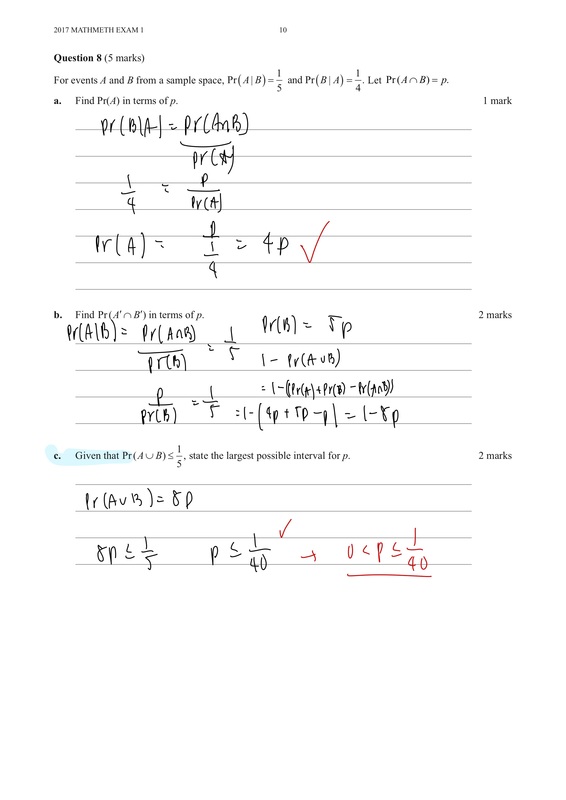 2017 MATHMETH EXAM 1
10
Question 8 (5 marks)
For events A and B from a sample space, Pr(A|B) = 1/5 and Pr(B|A) = 1/4. Let Pr(A ∩ B) = p.
a. Find Pr(A) in terms of p. 1 mark
Pr(B|A) = Pr(A∩B)/Pr(A)
1/4 = p/Pr(A)
Pr(A) = p/(1/4) = 4p ✓
b. Find Pr(A′ ∩ B′) in terms of p. 2 marks
Pr(A|B) = Pr(A∩B)/Pr(B) = 1/5
p/Pr(B) = 1/5
Pr(B) = 5p
1 - Pr(A∪B)
= 1-(Pr(A)+Pr(B)-Pr(A∩B))
= 1-(4p+5p-p) = 1-8p
c. Given that Pr(A ∪ B) ≤ 1/5, state the largest possible interval for p. 2 marks
Pr(A∪B) = 8p
8p ≤ 1/5 p ≤ 1/40 ✓ → 0 < p ≤ 1/40